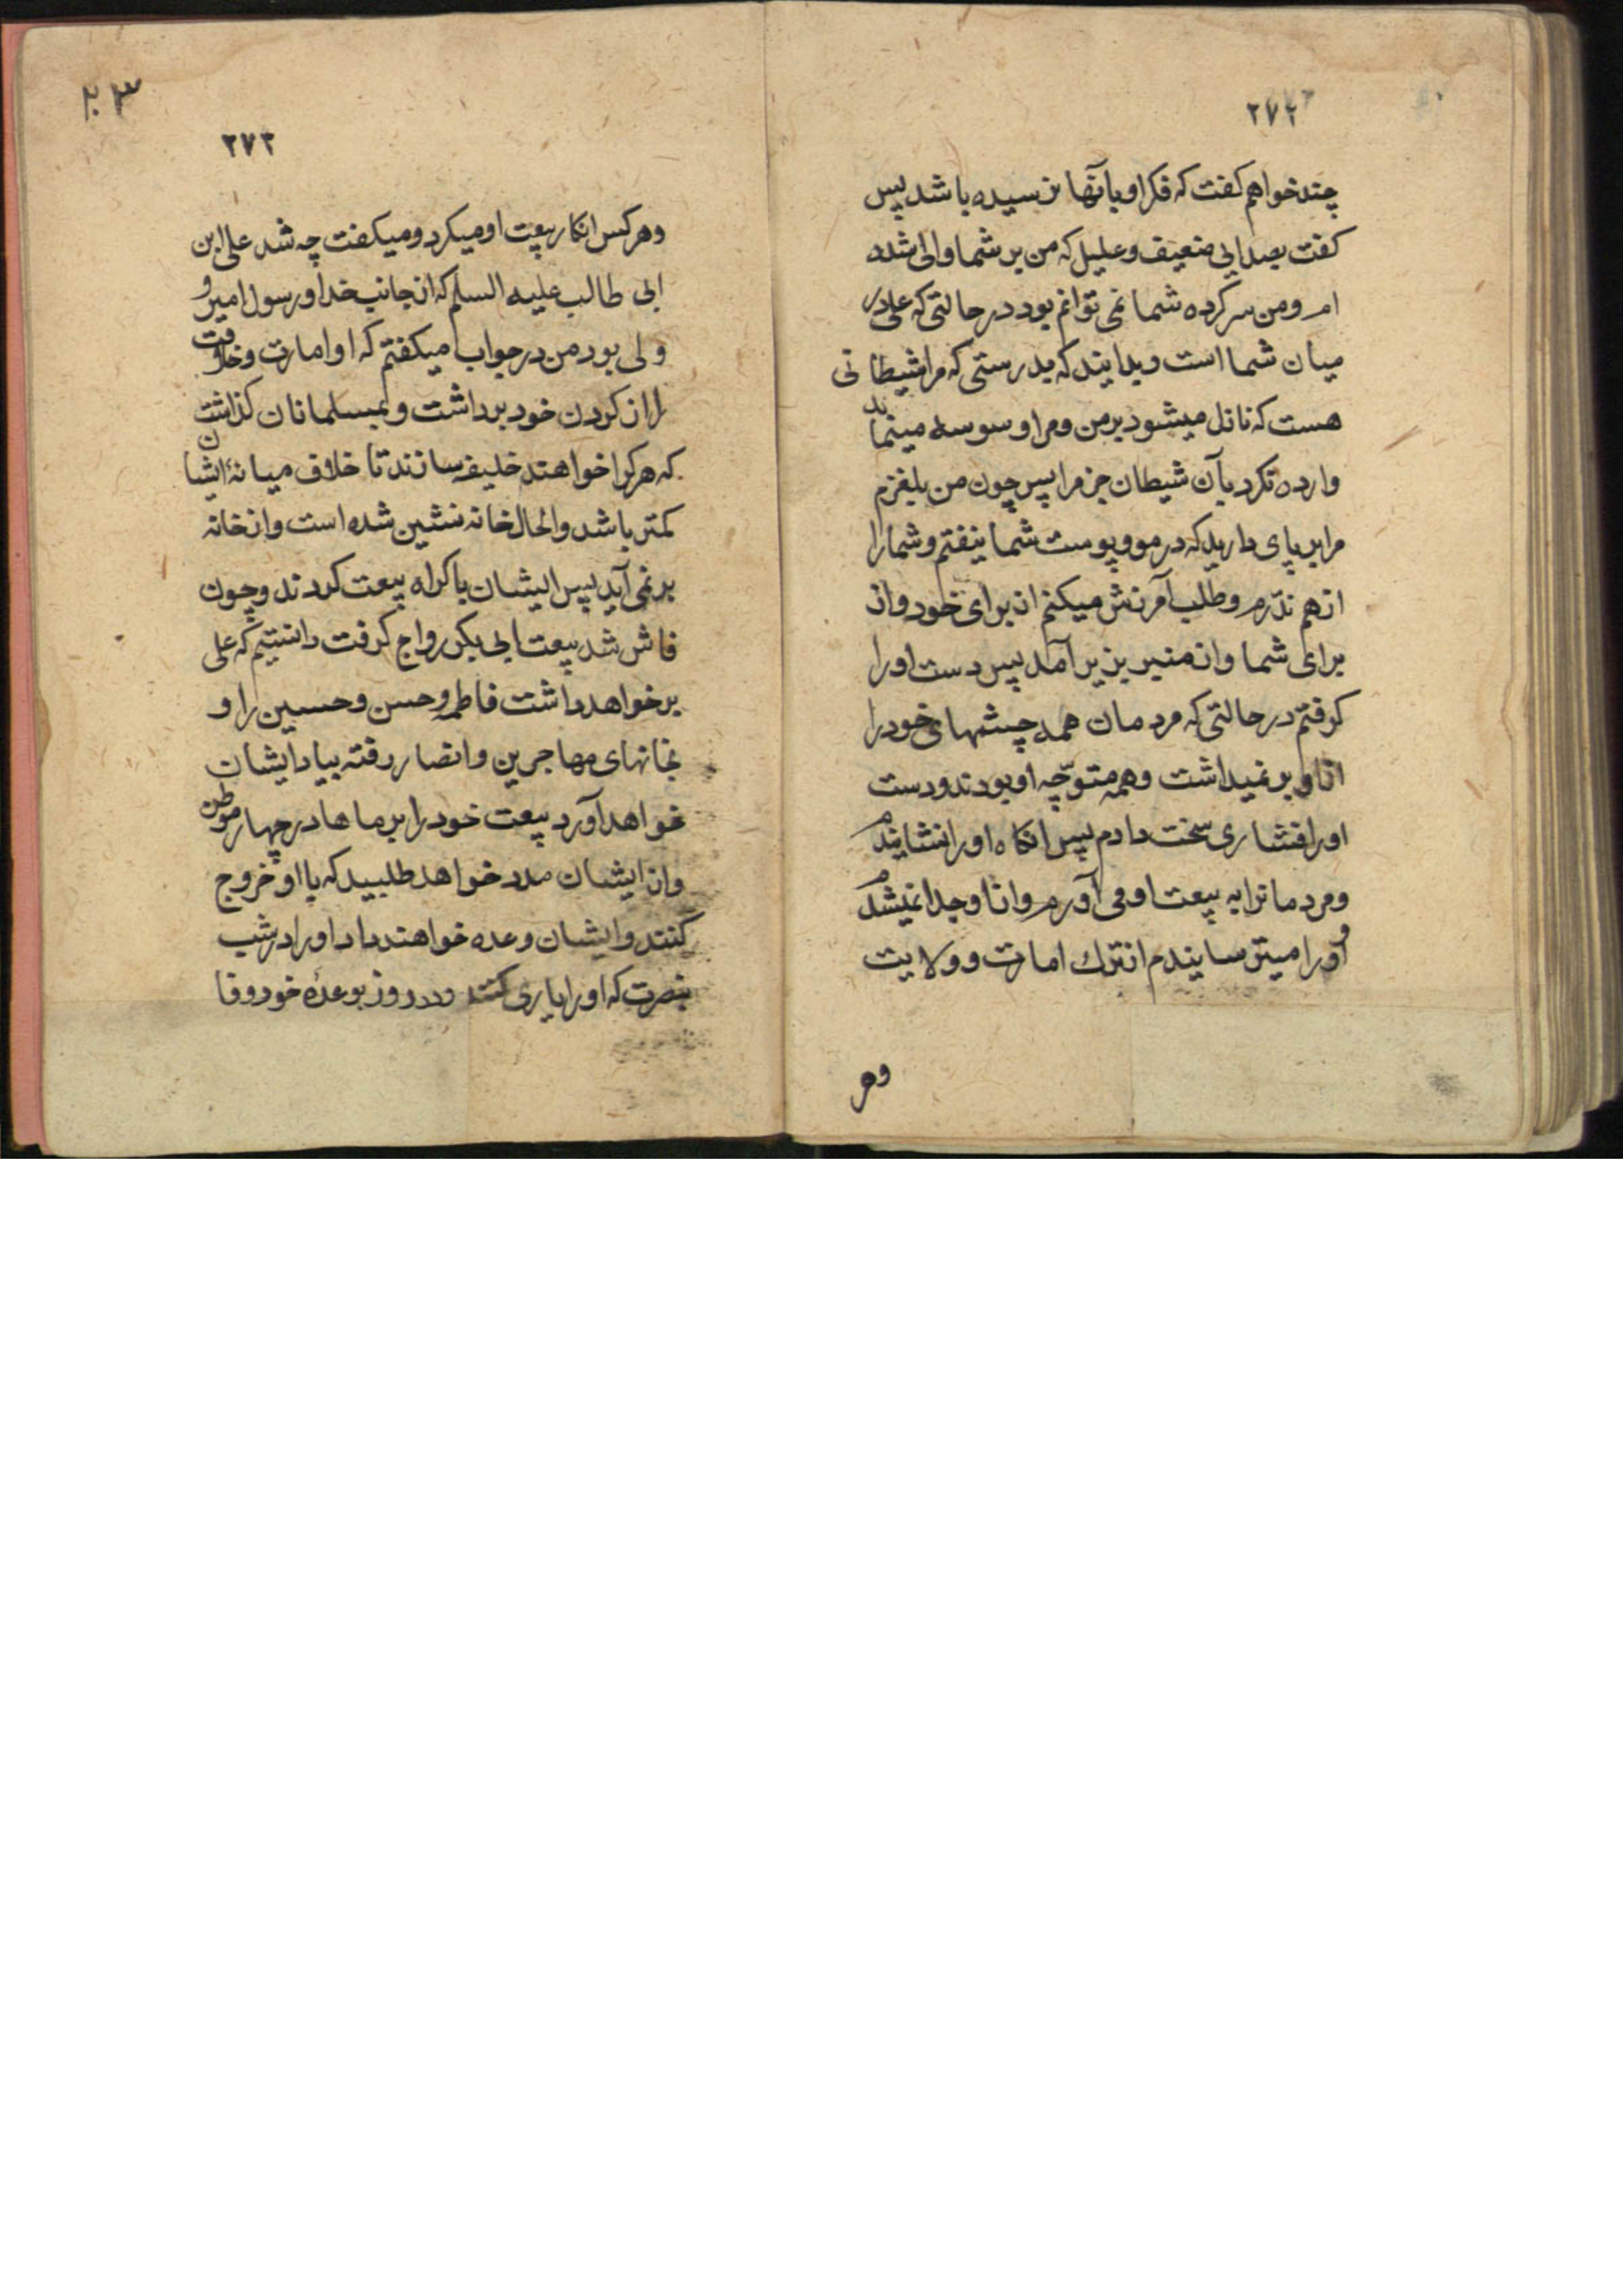 ۲۷۲
چند خواهم کفت که فکر او بآنها نرسیده باشد پس
کفت بصدایی ضعیف و علیل که من بر شما والی شده
ام و من سرکرده شما نمی توانم بود در حالتی که علی در
میان شما است و بدانید که بدرستی که مرا شیطانی
هست که نازل میشود بر من و مرا وسوسه مینماید
و اراده نکرد بآن شیطان جز مرا پس چون من بلغزم
مرا بر پای دارید که در مو و پوست شما نیفتم و شما را
از هم ندرم و طلب آمرزش میکنم از برای خود و از
برای شما و از منبر بزیر آمد پس دست او را
کرفتم در حالتی که مردمان همه چشمهای خود را
از او بر نمیداشت و همه متوجّه او بودند و دست
او را فشاری سخت دادم پس انکاه او را نشایندم
و مردمانرا به بیعت او می آورم و از او جدا نمیشدم
و او را میترسایندم از ترک امارت و ولایت
وهر
۲۰۳
۲۷۳
و هر کس انکار بیعت او میکرد و میکفت چه شد علی ابن
ابی طالب علیه السلم که از جانب خدا و رسول امیر و
ولی بود من در جواب میکفتم که او امارت و خلافت
را از کردن خود برداشت و بمسلمانان کذاشت
که هر کرا خواهند خلیفه سازند تا خلاف میانهٔ ایشان
کمتر باشد و الحال خانه نشین شده است و از خانه
بر نمی آید پس ایشان باکراه بیعت کردند و چون
فاش شد بیعت ابی بکر رواج کرفت دانستیم که علی
بر خواهد داشت فاطمه و حسن و حسین را و
بخانهای مهاجرین و انصار رفته بیاد ایشان
خواهد آورد بیعت خود را بر ماها در چهار موطن
و از ایشان مدد خواهد طلبید که با او خروج
کنند و ایشان وعده خواهند داد او را در شب
بنصرت که او را یاری کنند و در روز بوعدهٔ خود وفا